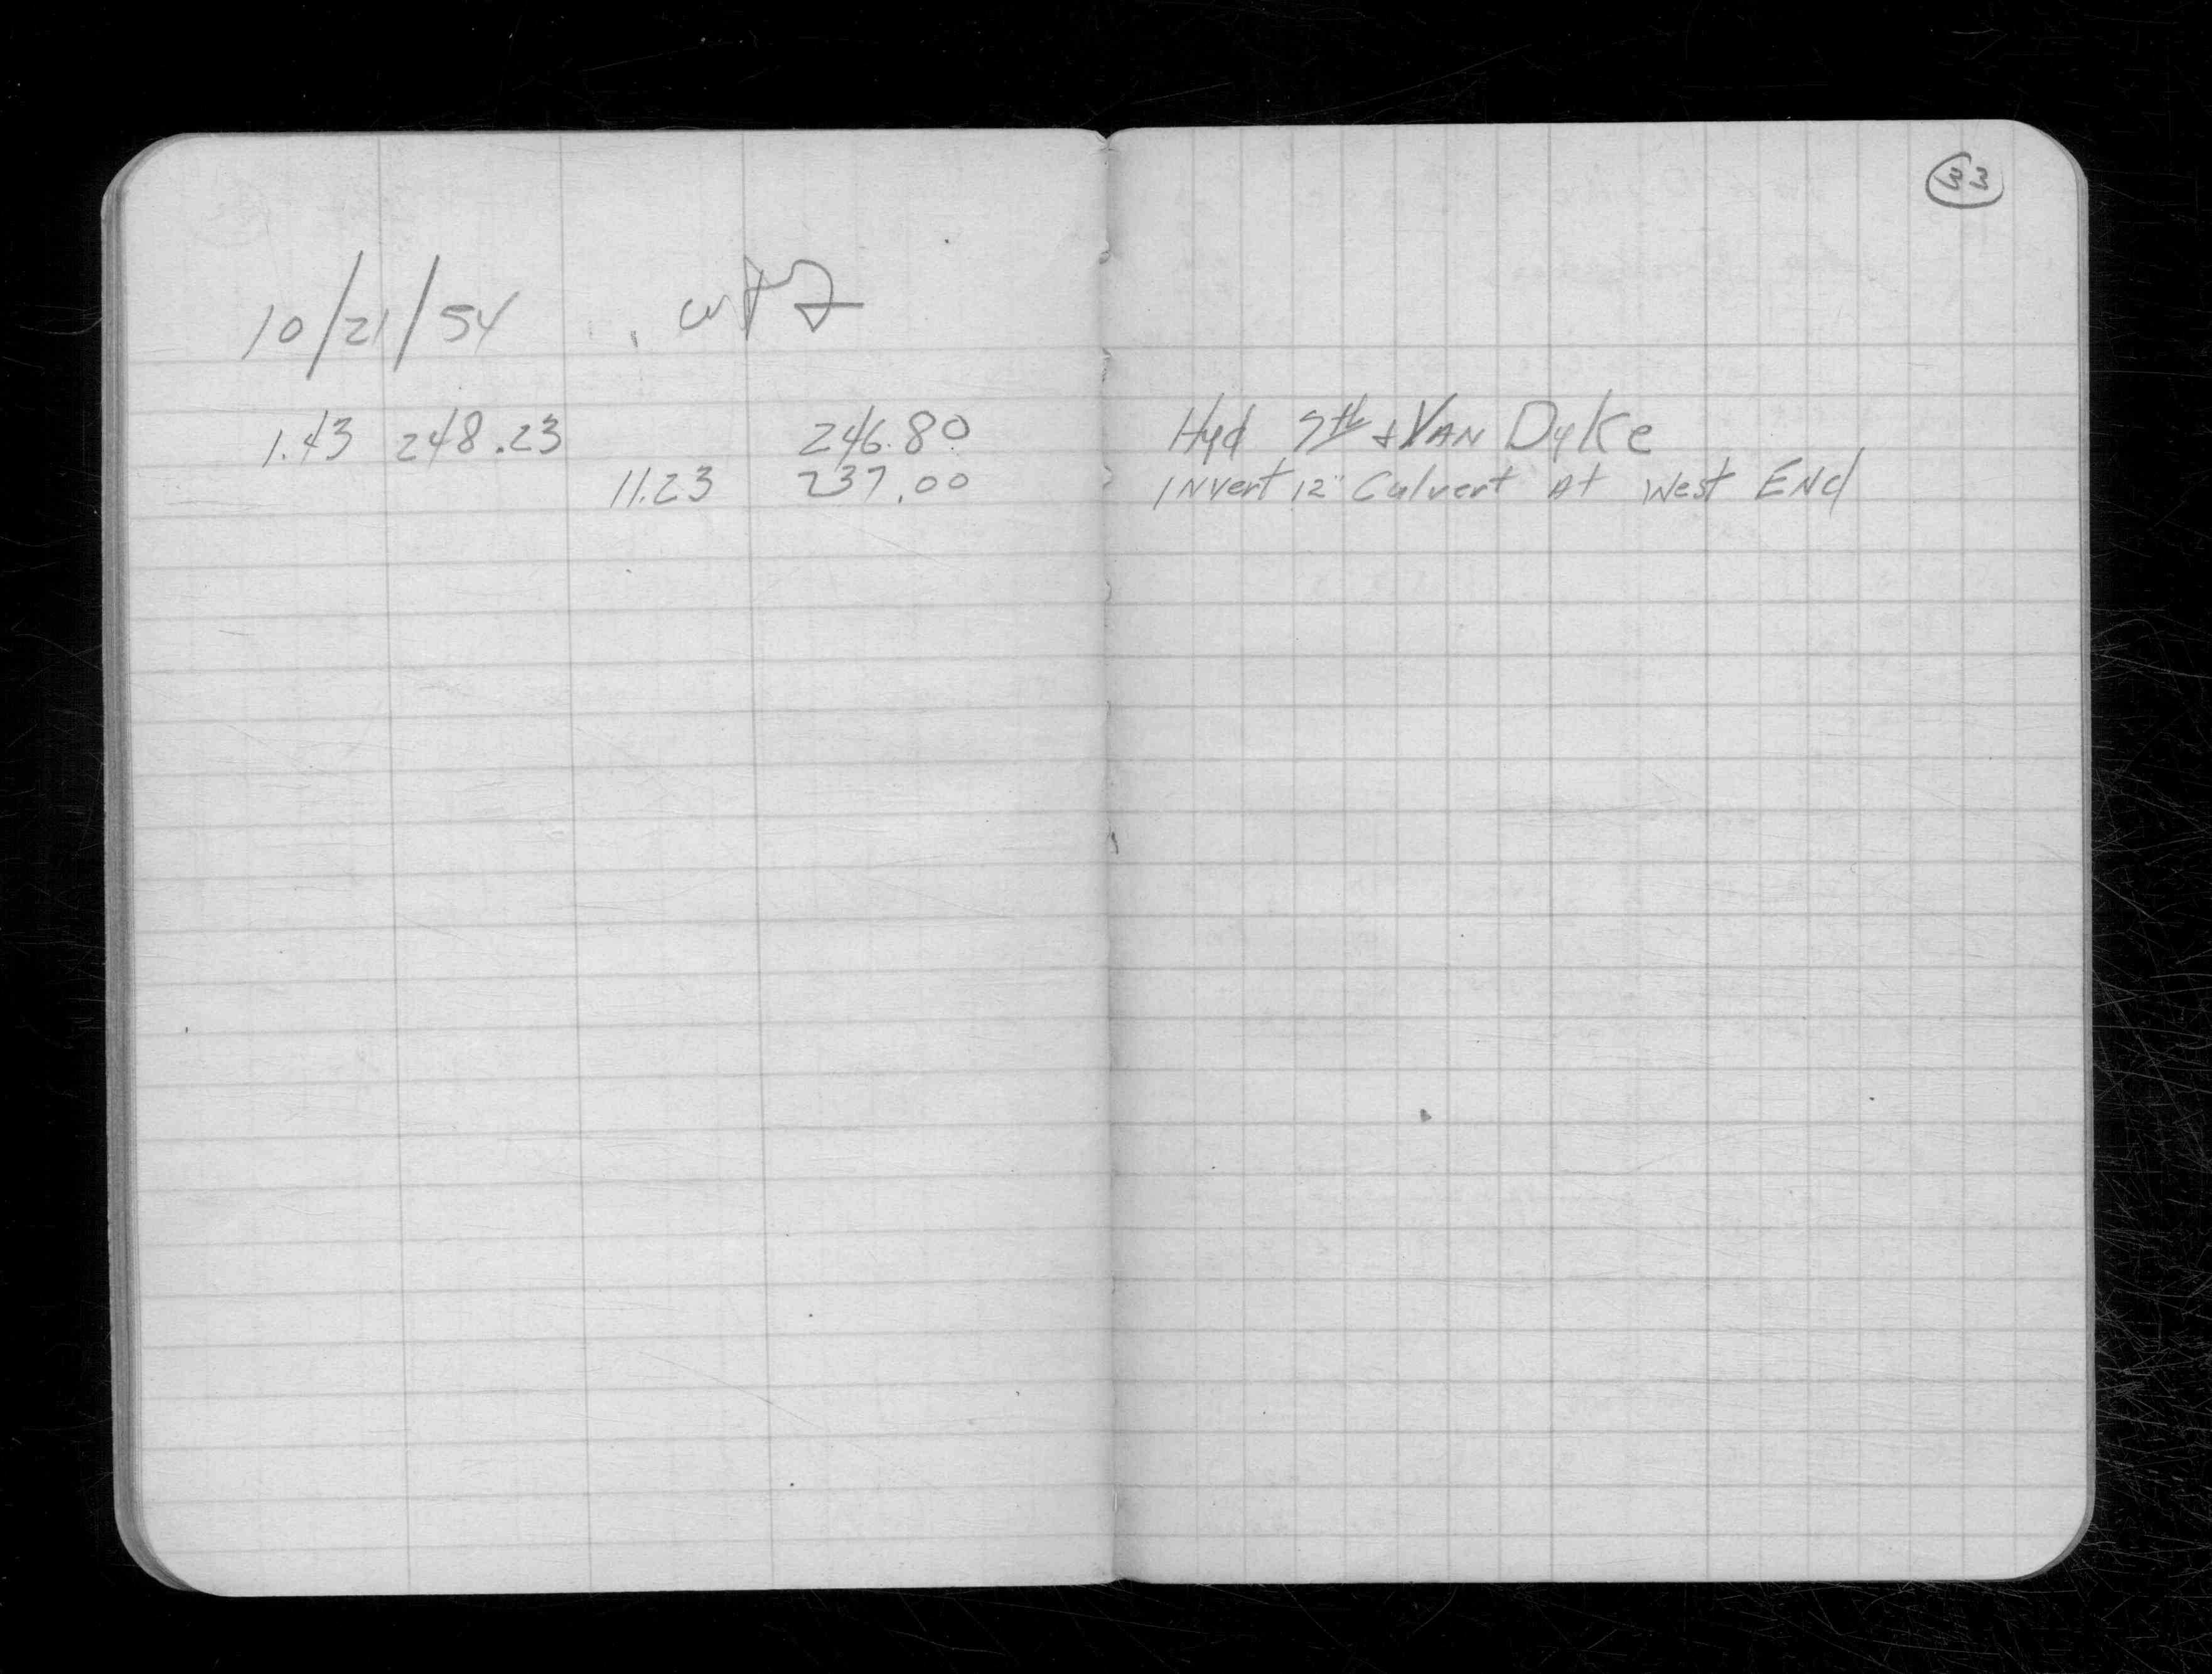 33
10/21/54
1.43 248.23 246.80 Hyd & VAN Dyke
11.23 237.00 Invert 12" Culvert At West End